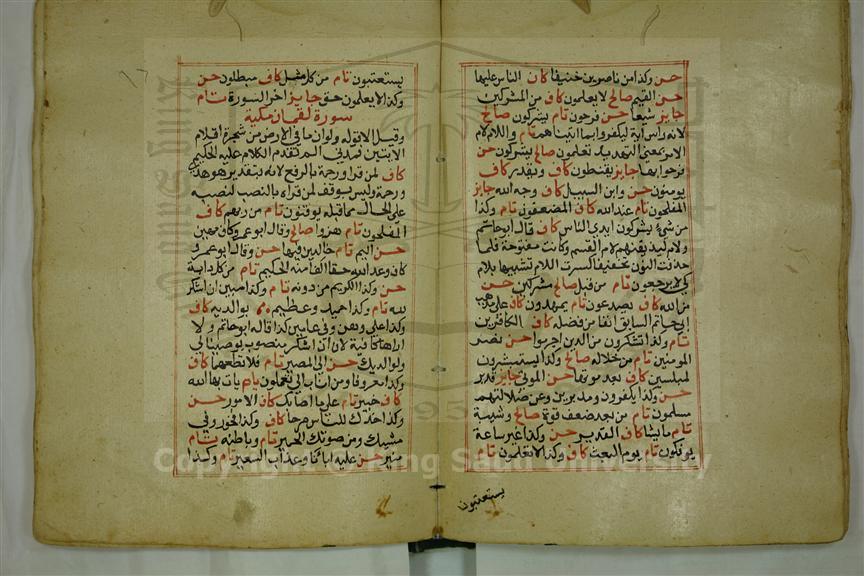 حسن وكذا من ناصرين حنيفا كاف الناس عليها
حسن القيم صالح لا يعلمون كاف من المشركين
جايز شيعا حسن فرحون تام يشركون صالح
لانه راس اية ليكفروا بما اتيناهم تام واللام لام
الامر بمعنى التهديد تعلمون صالح يشركون حسن
فرحوا بها جايز يقنطون كاف ويقدر كاف
يومنون حسن وابن السبيل كاف وجه الله جايز
المفلحون تام عند الله كاف المضعفون تام وكذا
من شيء يشركون ايدي الناس كاف قال ابو حاتم
ولام ليذيقنهم لام القسم وكانت مفتوحة فلما
حذفت النون تخفيفا كسرت اللام تشبيها بلام
كي يرجعون تام من قبل صالح مشركين حسن
من الله كاف يصدعون تام يمهدون كاف على مذهب
ابي حاتم السابق انفا من فضله كاف الكافرين
تام وكذا تشكرون من الذين اجرموا حسن نصر
المومنين تام من خلاله صالح وكذا يستبشرون
لمبلسين كاف بعد موتها حسن الموتى جايز قدير
حسن وكذا يكفرون ومدبرين وعن ضلالتهم
مسلمون تام من بعد ضعف قوة صالح وشيبة
تام ما يشا كاف القدير حسن وكذا غير ساعة
يوفكون تام يوم البعث كاف وكذا لا تعلمون تام
يستعتبون
يستعتبون تام من كل مثل كاف مبطلون حسن
وكذا لا يعلمون حق جايز اخر السورة تام
سورة لقمان مكية
وقيل الا قوله ولو ان ما في الارض من شجرة اقلام
الايتين فمدني الم تقدم الكلام عليه الحكيم
كاف لمن قرا ورحمة بالرفع لانه بتقدير هو هدى
ورحمة وليس بوقف لمن قراه بالنصب لنصبه
على الحال مما قبله يوقنون تام من ربهم كاف
المفلحون تام هزوا صالح وقال ابو عمرو كاف مهين
حسن اليم تام خالدين فيها حسن وقال ابو عمرو
كاف وعد الله حقا الحكيم تام من كل دابة
حسن وكذا كريم من دونه تام وكذا مبين ان اشكر
لله تام وكذا حميد وعظيم بوالديه كاف
وكذا على وهن وفي عامين كذا قاله ابو حاتم ولا
اراها كافية لان ان اشكر منصوب بوصينا لي
ولوالديك حسن الي المصير تام فلا تطعهما كاف
وكذا معروفا ومن اناب الي تعملون تام يات بها الله
كاف خبير تام على ما اصابك كاف الامور حسن
وكذا خدك للناس مرحا كاف وكذا فخور وفي
مشيك ومن صوتك الحمير تام وباطنه تام
منير حسن عليه اباءنا وعذاب السعير تام وكذا
Copyright © King Saud University